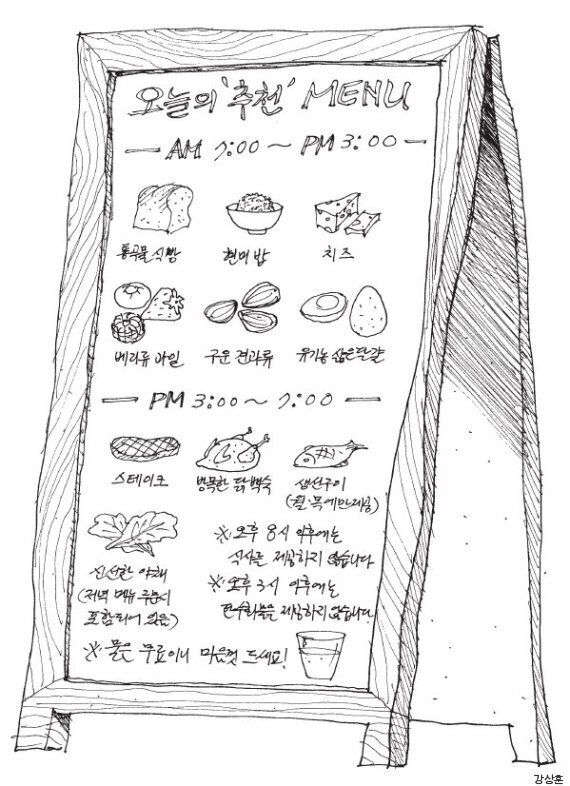 오늘의 '추천' MENU
AM 7:00 ~ PM 3:00
통곡물 식빵 현미밥 치즈
베리류 과일 구운 견과류 유기농 삶은달걀
PM 3:00 ~ 7:00
스테이크 방목한 닭백숙 생선구이
(월·목에만 제공)
신선한 야채
(저녁 메뉴 주문시
포함되어 있음)
※ 오후 8시 이후에는
식사를 제공하지 않습니다
※ 오후 3시 이후에는
탄수화물을 제공하지 않습니다
※ 물은 무료이니 마음껏 드세요!
강상훈